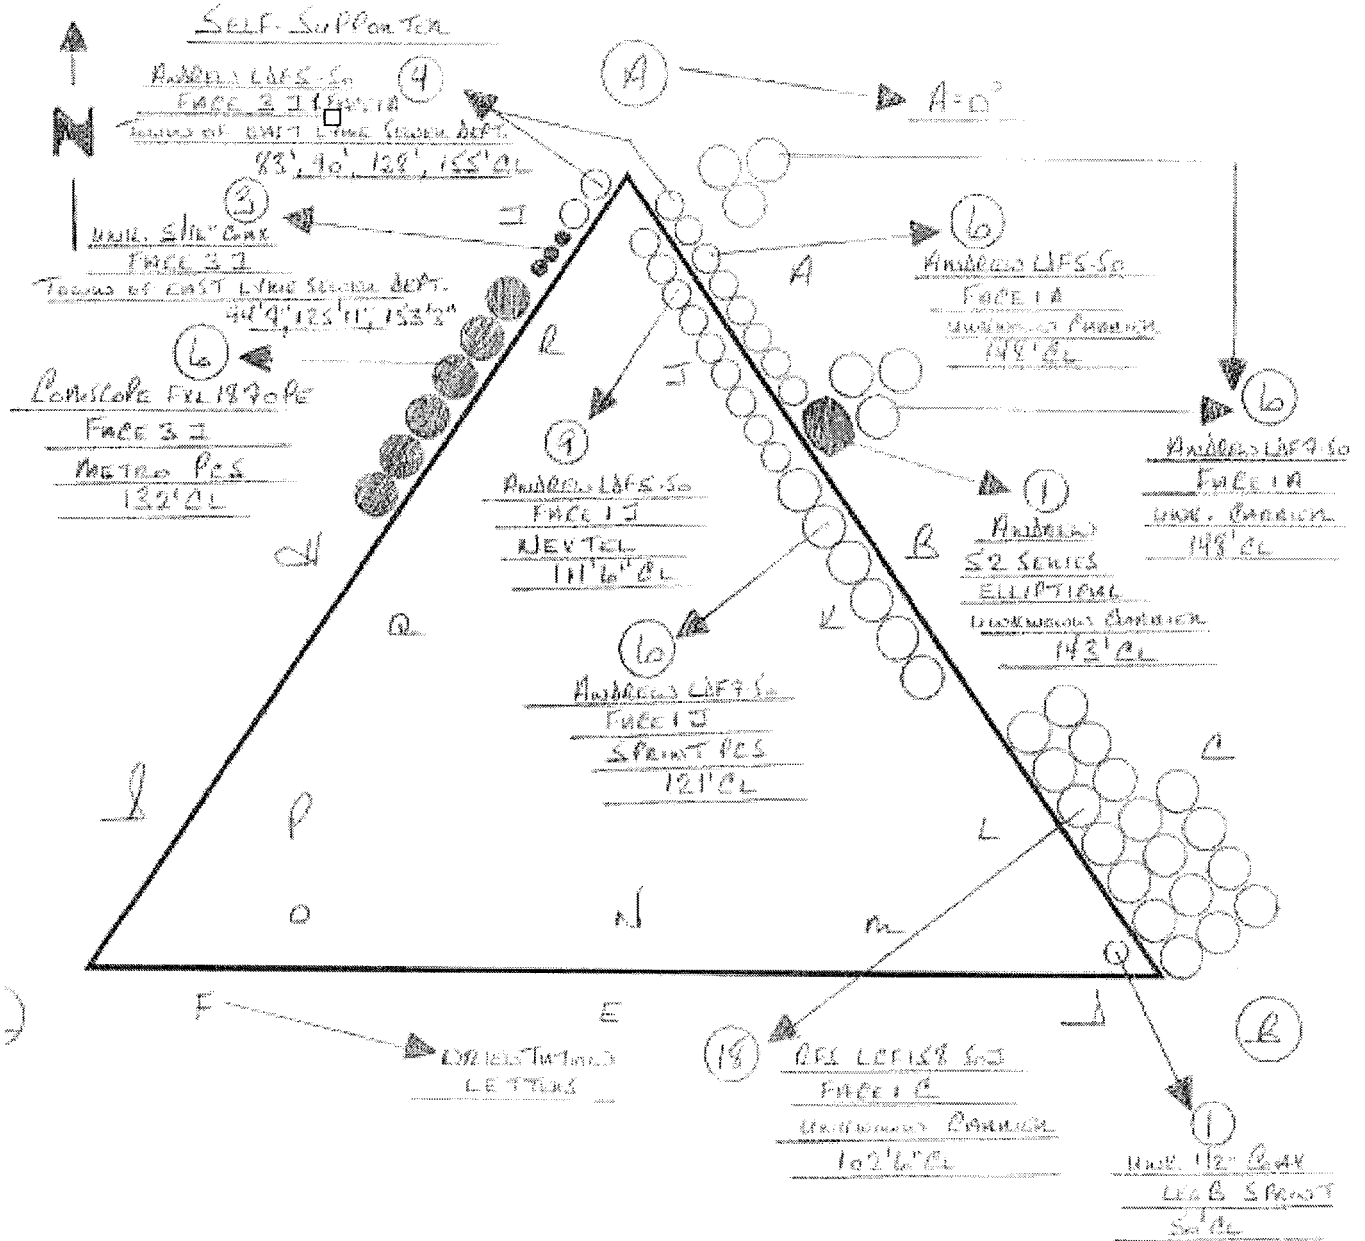 SELF-SUPPORTER
N
4
ANDREW LDF5-50
FACE 3 J
TOWN OF EAST LYME SEWER DEPT.
83', 90', 128', 155' CL
3
UNK. 5/16" COAX
FACE 3 J
TOWN OF EAST LYME SEWER DEPT.
44'9", 125'11", 153'3"
6
COMSCOPE FXL 1870 PE
FACE 3 J
METRO PCS
132' CL
A
A=0°
6
ANDREW LDF5-50
FACE 1 A
UNKNOWN CARRIER
148' CL
6
ANDREW LDF7-50
FACE 1 A
UNK. CARRIER
148' CL
J
R
A
J
9
ANDREW LDF5-50
FACE 1 J
NEXTEL
111'6" CL
1
ANDREW
52 SERIES
ELLIPTICAL
UNKNOWN CARRIER
143' CL
H
Q
B
K
6
ANDREW LDF7-50
FACE 1 J
SPRINT PCS
121' CL
C
P
L
O
N
M
F
E
D
B
ORIENTATION
LETTERS
18
RFS LCF158 50J
FACE 1 C
UNKNOWN CARRIER
102'6" CL
1
UNK. 1/2" COAX
LEG B SPRINT
50' CL